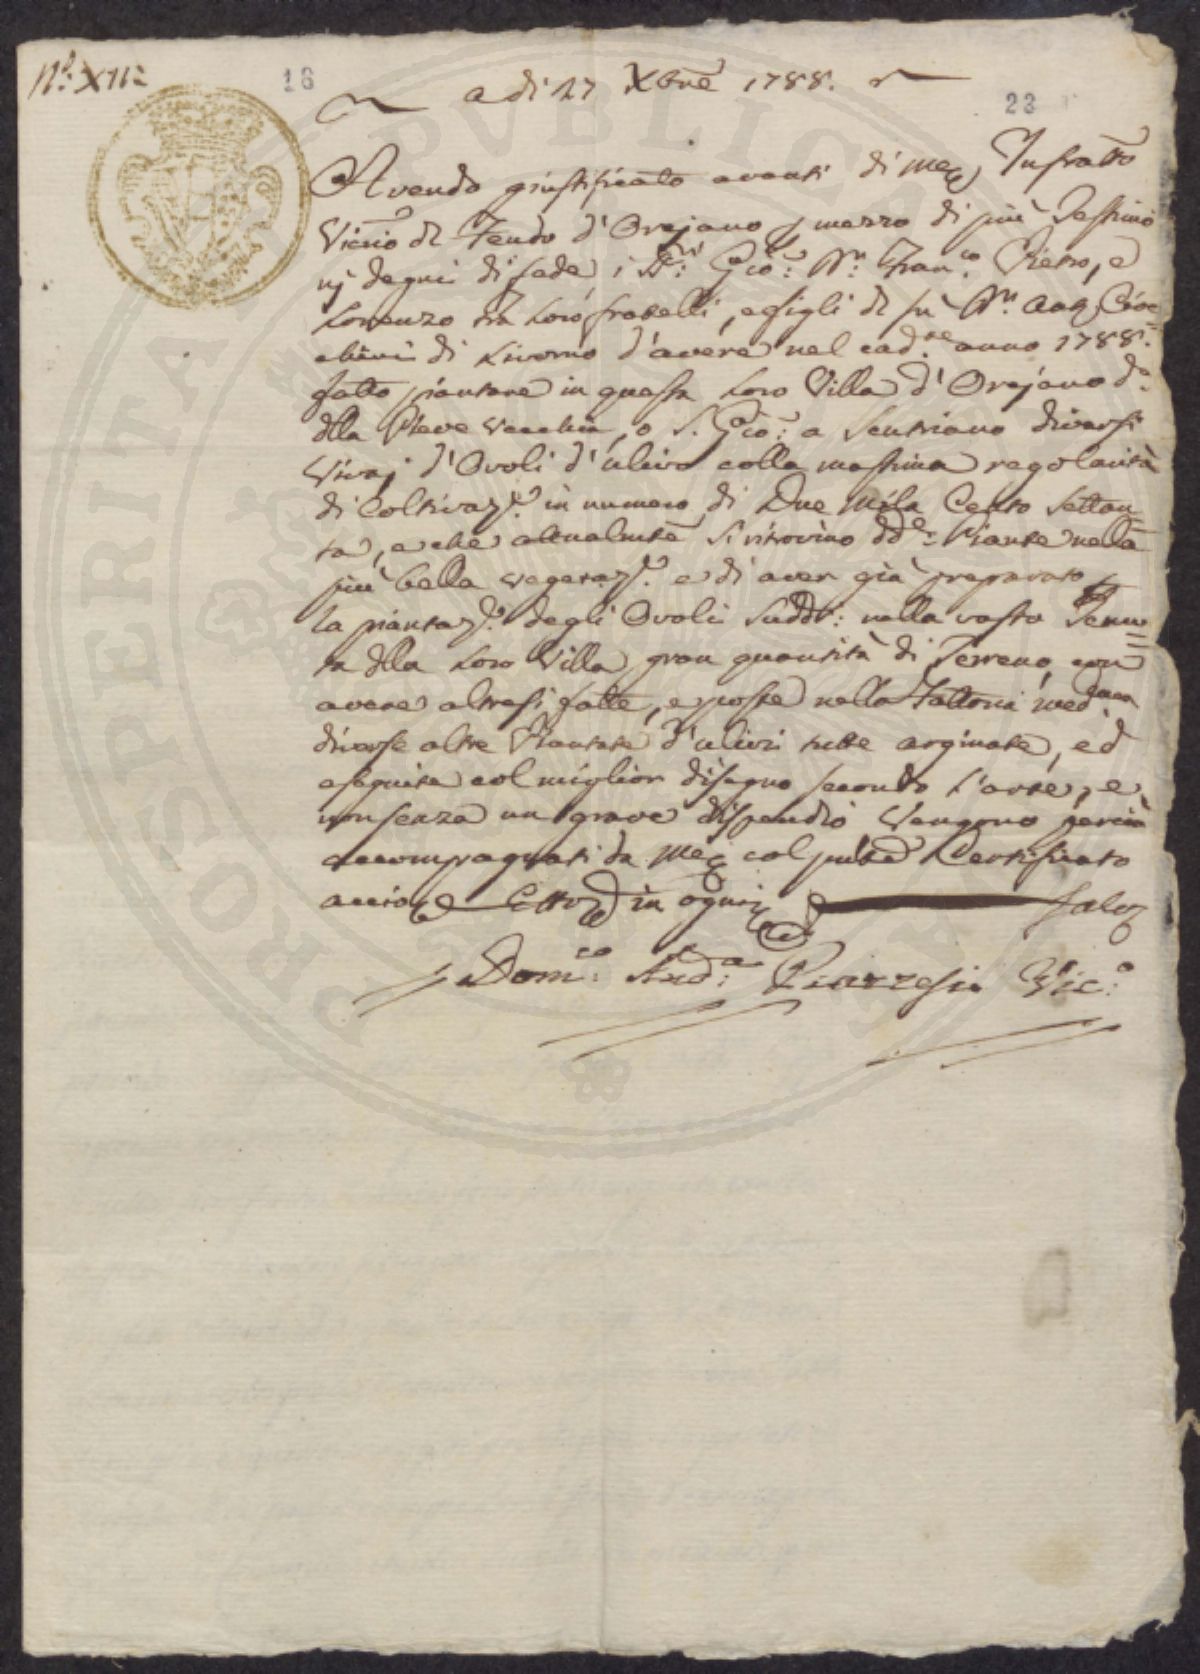 N.º XII:
16
a di 27 Xbre 1788.
23
Avendo giustificato avanti di me Infratto
Vicrio del Feudo d'Orejano p mezzo di più Testimo
nj degni di fede, i SS.ri Gio: Bn. Fran.co Pietro, e
Lorenzo tra Loro fratelli, e figli del fù
chini di Livorno d'avere nel cad.te anno 1788.
fatto piantare in questa Loro Villa d'Orejano d.a
della Pieve Vecchia, o S. Gio: a Sentriano diversi
Vivaj d'Ovoli d'ulivo colla massima regolarità
di Coltivaz.e in numero di Due Mila Cento Settan=
ta, e che attualmte si ritrovino dd.e Piante nella
più bella vegetaz.e e di aver già preparato p
la piantaz.e degli Ovoli Suddti: nella vasta Tenu=
ta della Loro Villa gran quantità di Terreno, con
avere altresi fatte, e poste nella Fattoria medma
diverse altre Piantate d'ulivi tutte arginate, ed
eseguite col miglior disegno secondo l'arte, e
non senza un grave dispendio Vengono perciò
accompagnati da me col pnte Certificato
accio in ogni Salvo
Dom.co And.a Piazzesi Vic.o